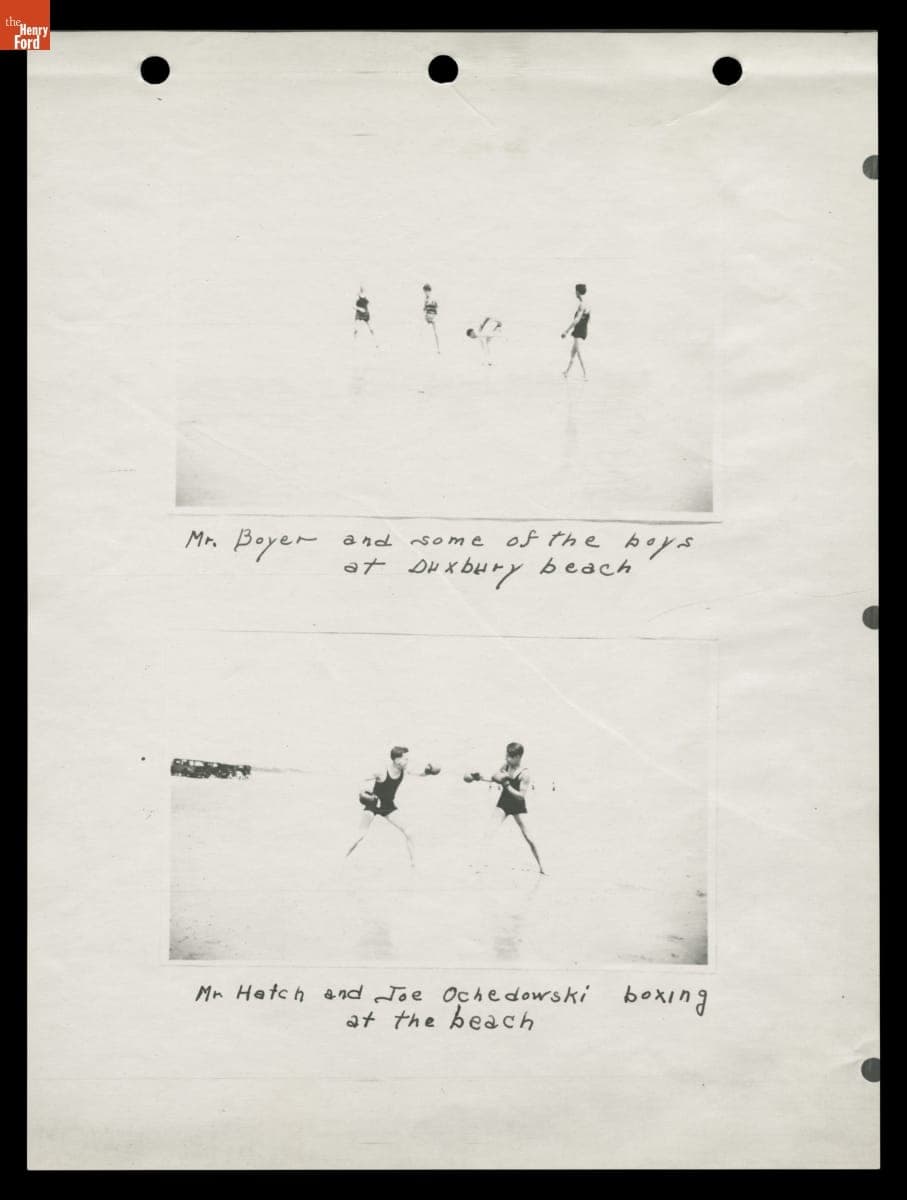 the
Henry
Ford
Mr. Boyer and some of the boys
at Duxbury beach
Mr Hatch and Joe Ochedowski boxing
at the beach